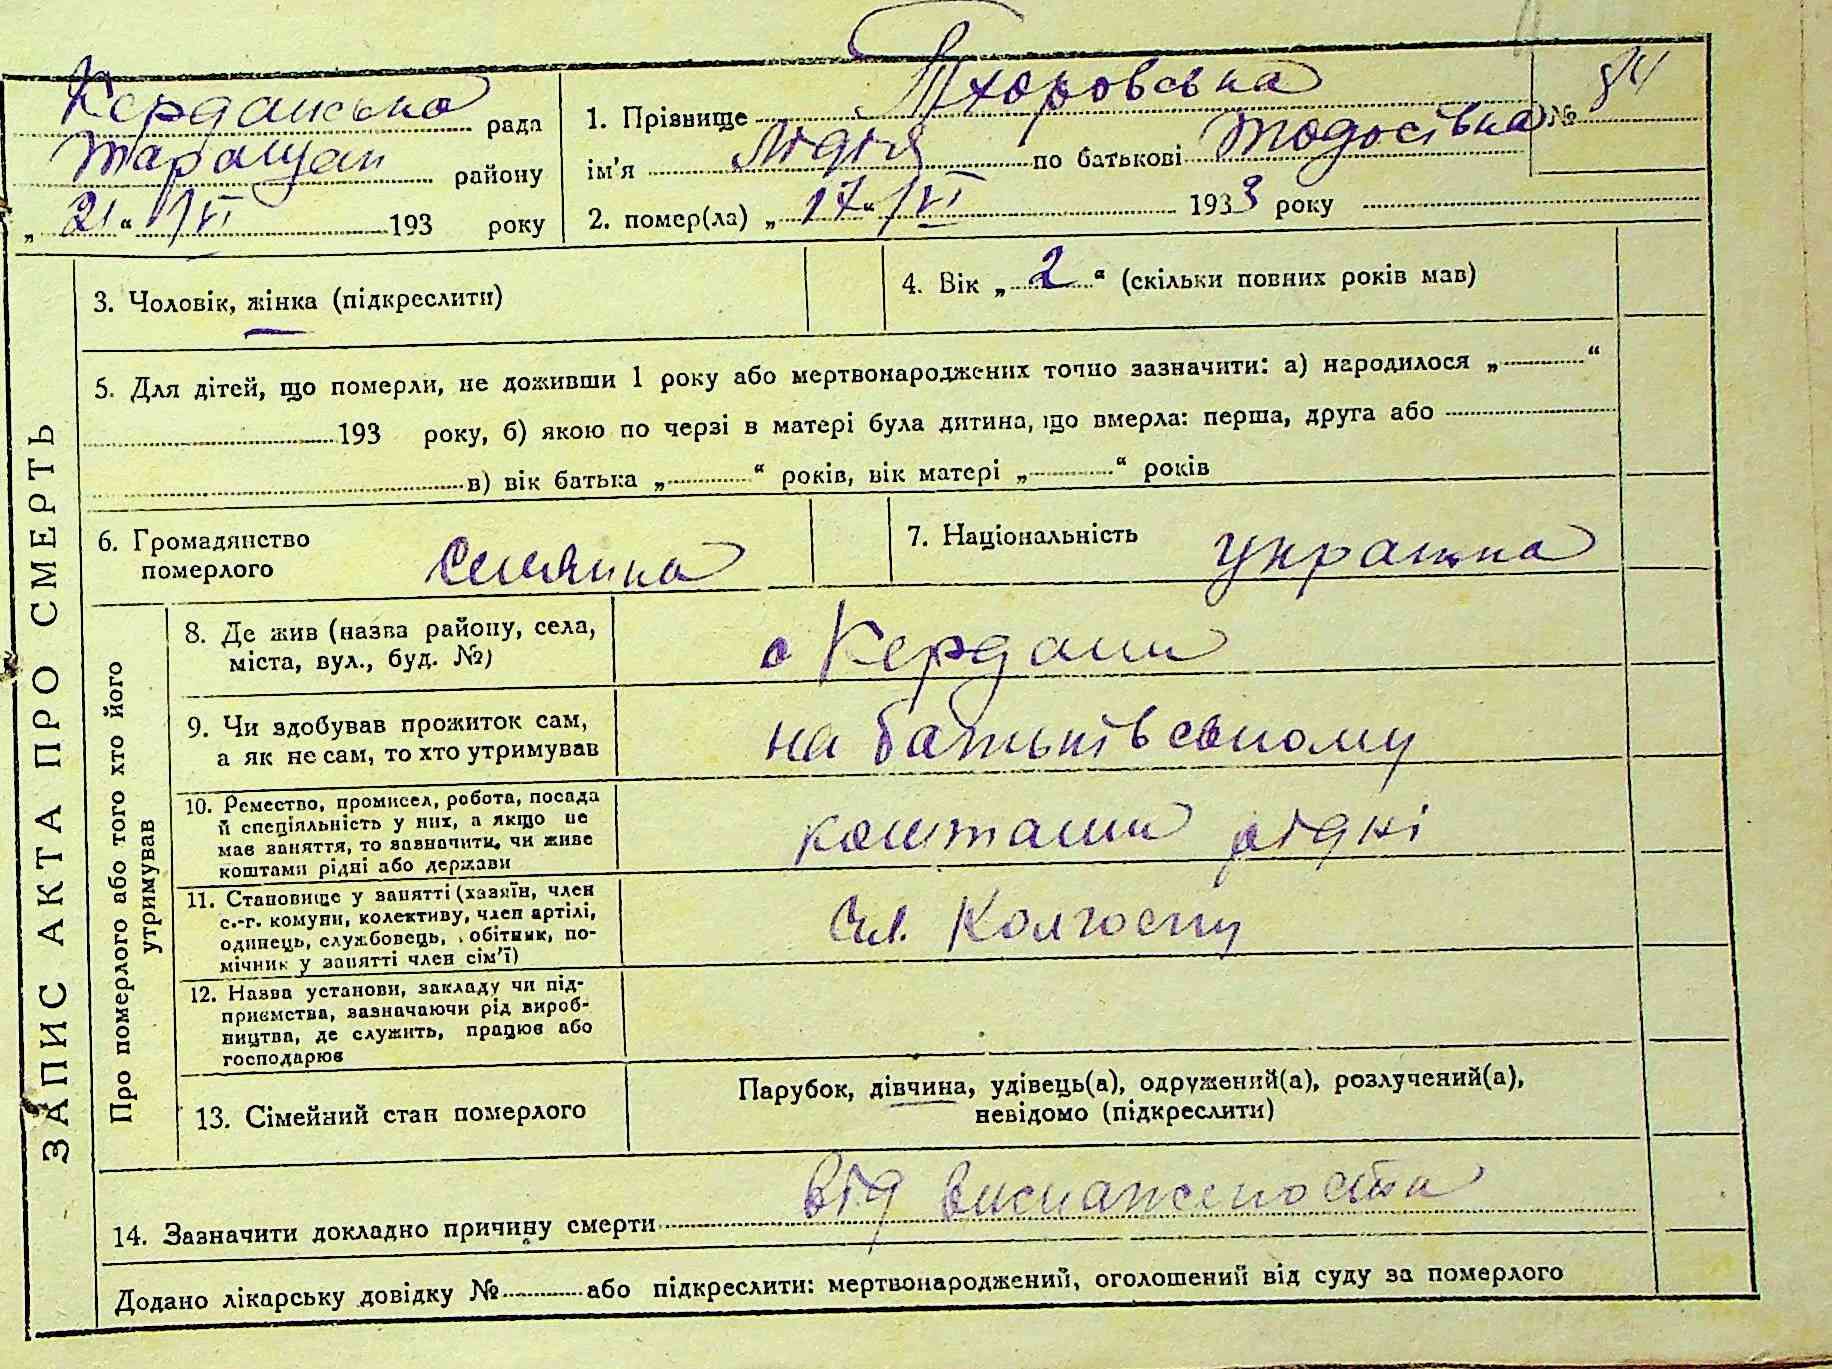 Керданська рада
Таращан району
„ 21 “ /VI 193 року
1. Прізвище Тхоровська
№ 84
ім'я Лідія по батькові Тодосівна
2. помер(ла) „ 17 “ /VI 1933 року
ЗАПИС АКТА ПРО СМЕРТЬ
3. Чоловік, жінка (підкреслити)
4. Вік „ 2 “ (скільки повних років мав)
5. Для дітей, що померли, не доживши 1 року або мертвонароджених точно зазначити: а) народилося „ “
193 року, б) якою по черзі в матері була дитина, що вмерла: перша, друга або
в) вік батька „ “ років, вік матері „ “ років
6. Громадянство
померлого
селянка
7. Національність
українка
Про померлого або того хто його
утримував
8. Де жив (назва району, села,
міста, вул., буд. №)
с Кердани
9. Чи здобував прожиток сам,
а як не сам, то хто утримував
на батьківському
10. Ремество, промисел, робота, посада
й спеціяльність у них, а якщо не
мав заняття, то зазначити, чи живе
коштами рідні або держави
коштами рідні
11. Становище у занятті (хазяїн, член
с.-г. комуни, колективу, член артілі,
одинець, службовець, обітник, по-
мічник у занятті член сім'ї)
Чл. Колгоспу
12. Назва установи, закладу чи під-
приємства, зазначаючи рід вироб-
ництва, де служить, працює або
господарює
13. Сімейний стан померлого
Парубок, дівчина, удівець(а), одружений(а), розлучений(а),
невідомо (підкреслити)
14. Зазначити докладно причину смерти від виснажености
Додано лікарську довідку № або підкреслити: мертвонароджений, оголошений від суду за померлого